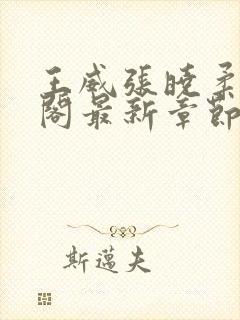 王威張曉柔
閣最新章節
斯邁夫